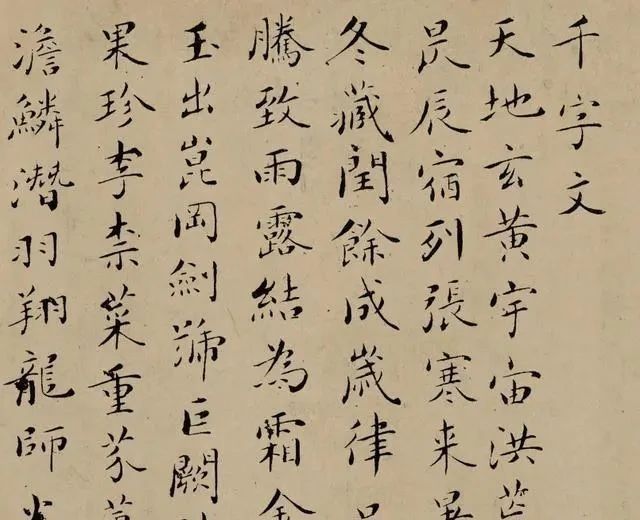 千字文
天地玄黄宇宙洪荒
昃辰宿列張寒来
冬藏閏餘成歲律
騰致雨露結為霜金
玉出崑岡劍號巨闕
果珍李柰菜重芥
澹鱗潛羽翔龍師